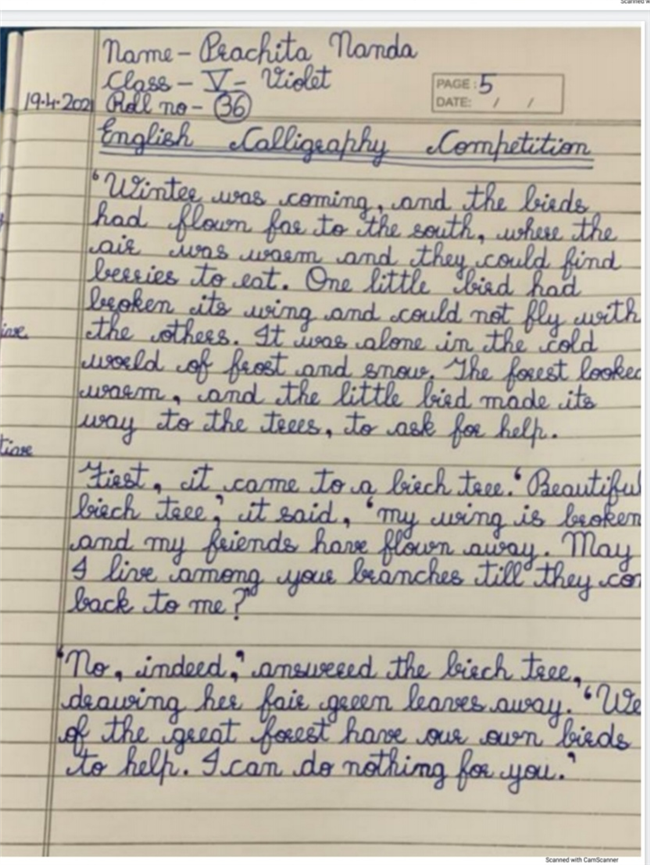 Scanned w
Name - Prachita Nanda
Class - V - Violet
PAGE: 5
19.4.202 Roll no - 36
DATE: / /
English Calligraphy Competition
'Winter was coming, and the birds
had flown far to the south, where the
air was warm and they could find
berries to eat. One little bird had
broken its wing and could not fly with
the others. It was alone in the cold
world of frost and snow. The forest looked
warm, and the little bird made its
way to the trees, to ask for help.
First, it came to a birch tree. 'Beautiful
birch tree,' it said, 'my wing is broken
and my friends have flown away. May
I live among your branches till they co
back to me?'
'No, indeed,' answered the birch tree,
drawing her fair green leaves away. 'We
of the great forest have our own birds
to help. I can do nothing for you.'
Scanned with CamScanner